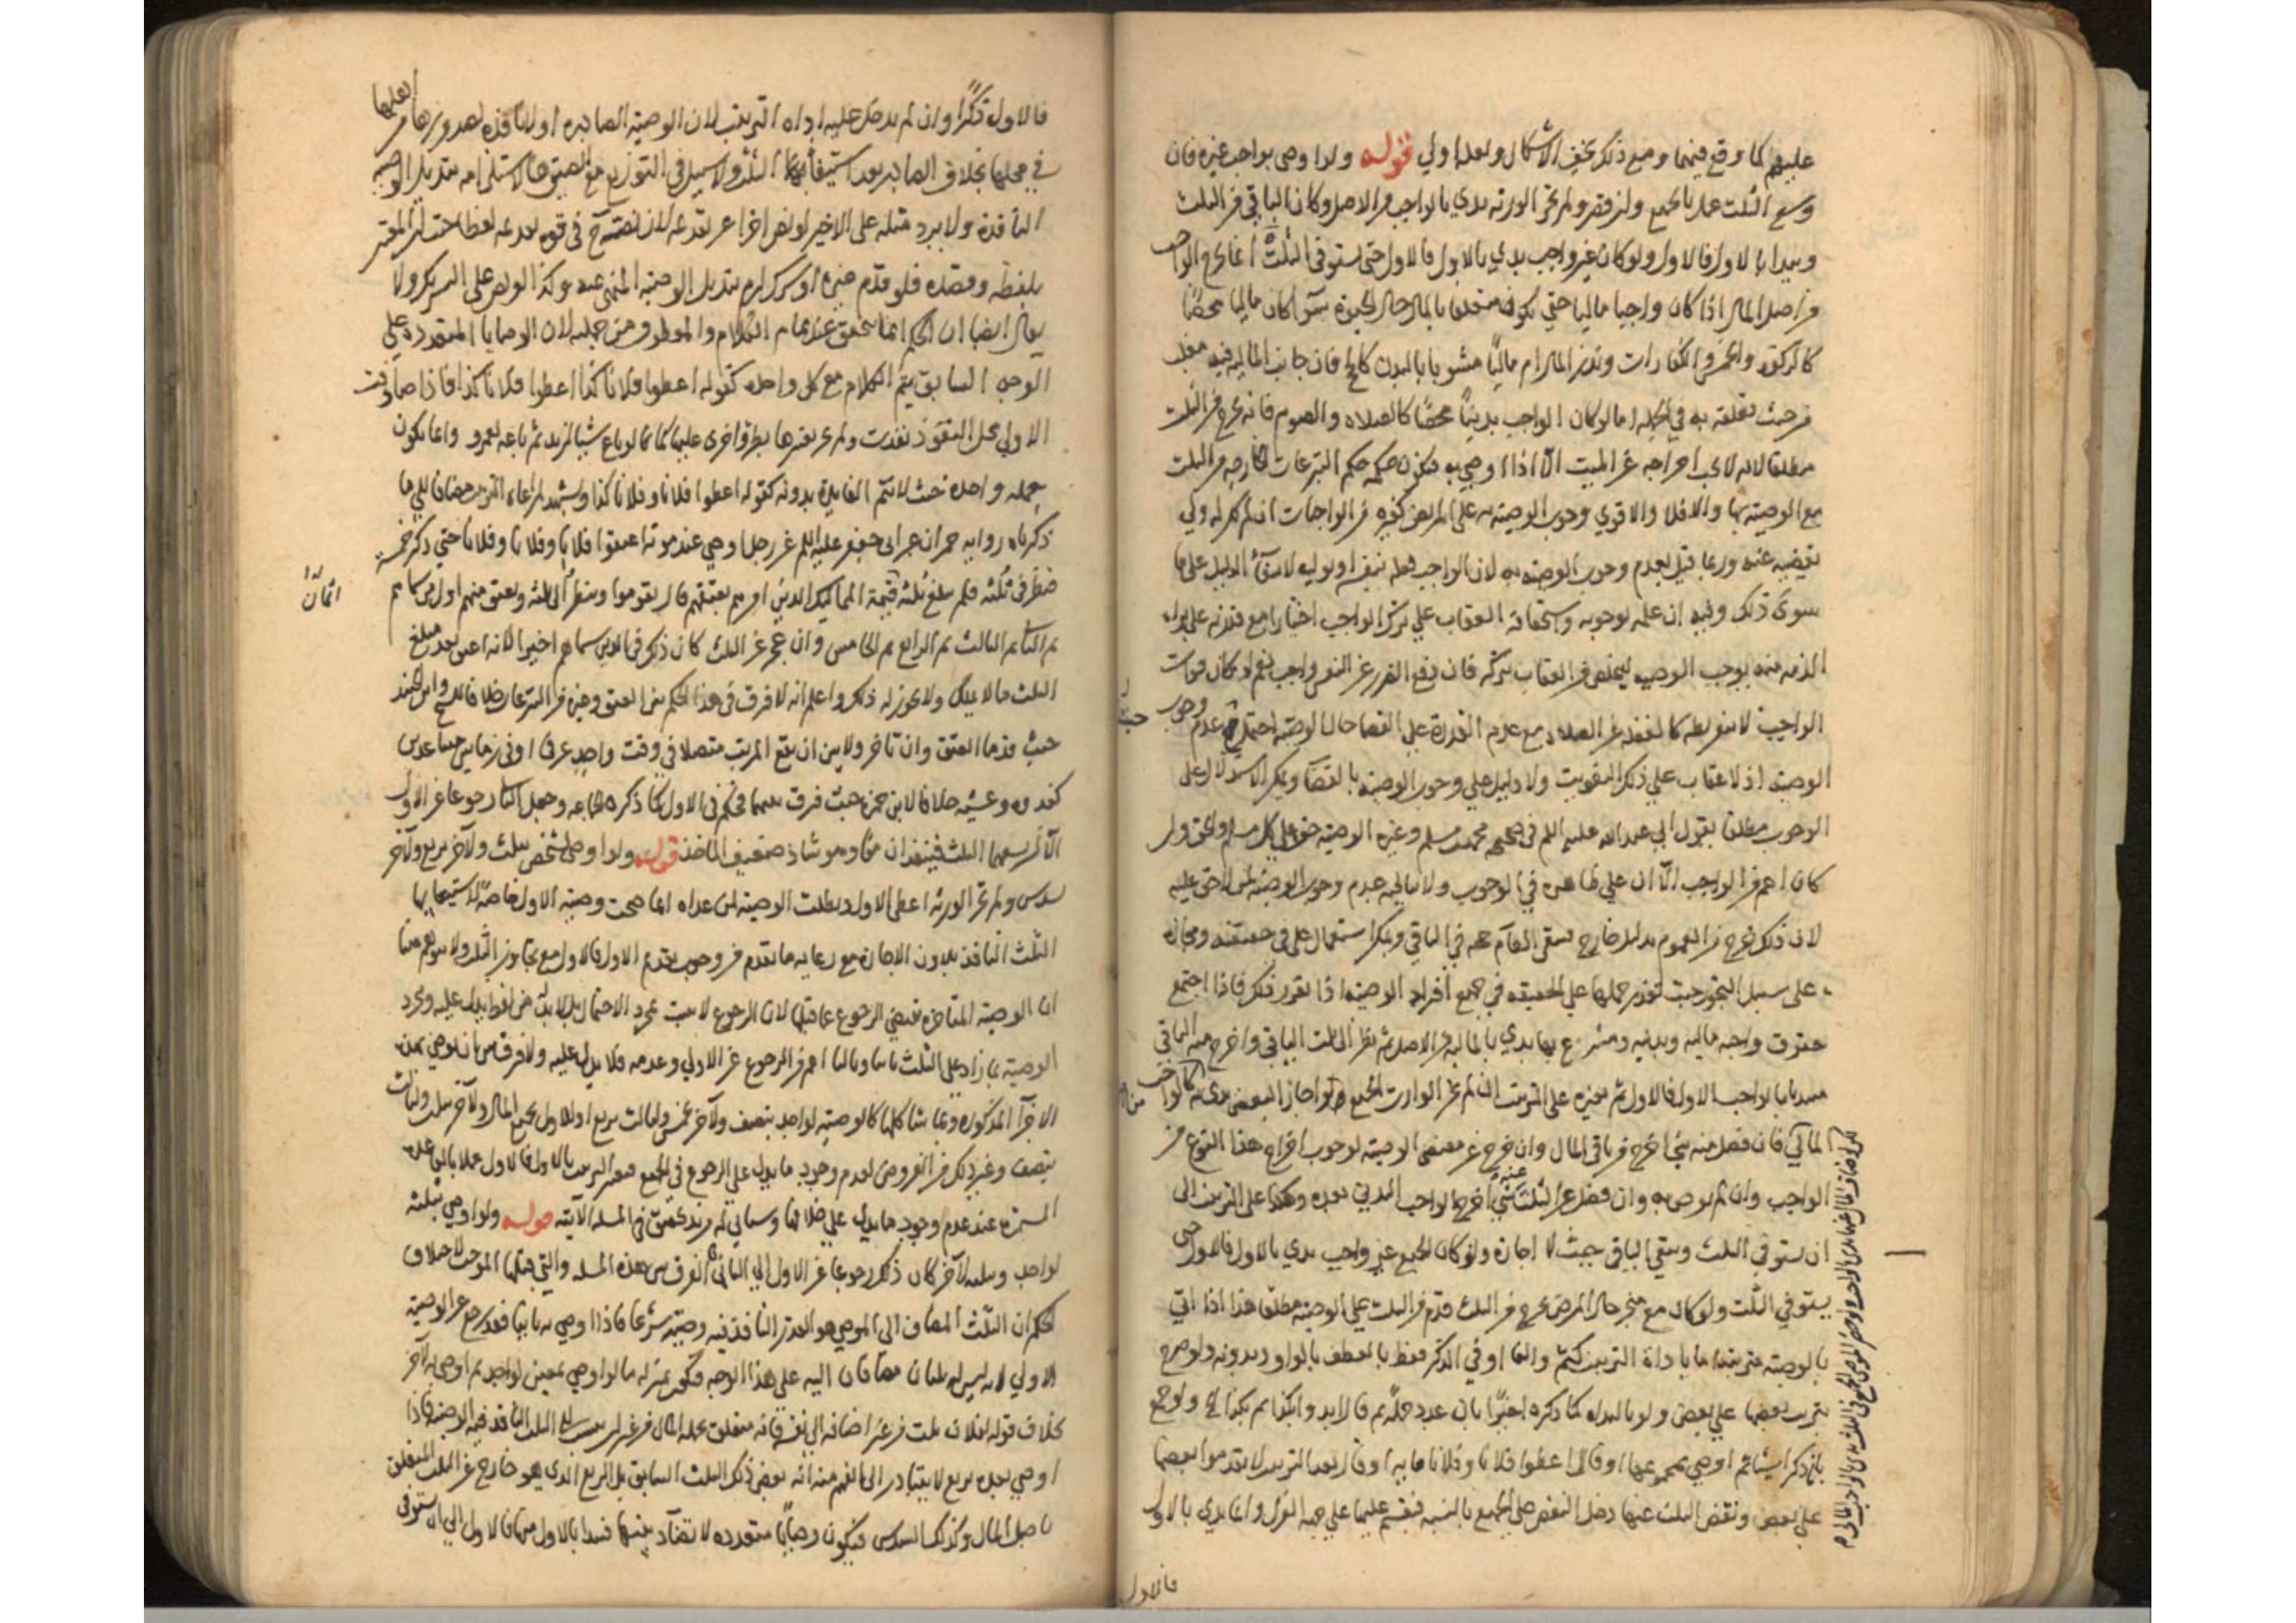 عليهم كما وقع فيهما ومع ذلك يخف الاشكال ولعله اولى قوله ولو اوصى بواجب غيره فان
وسع الثلث عمل بالجميع وان قصر ولم تجز الورثه بدي بالواجب من الاصل وكان الباقي من الثلث
ويبدا بالاول فالاول ولو كان غير واجب بدي بالاول فالاول حتى يستوفى الثلث انما يخرج الواجب
من اصل المال اذا كان واجبا ماليا حتى يكون متعلقا بالمال حال الحيوة سوآ كان ماليا محضا
كالزكوة والخمس والكفارات ونذر المال ام ماليا مشوبا بالبدن كالحج فان جانب الماليه فيه مغلب
من حيث تعلقه به في الجمله اما لو كان الواجب بدنيا محضا كالصلاه والصوم فانه يخرج من الثلث
مطلقا لانه لا يجب اخراجه عن الميت الا اذا اوصى به فيكون حكمه حكم التبرعات الخارجه من الثلث
مع الوصيه بها والا فلا والاقوى وجوب الوصيه به على المريض كغيره من الواجبات ان لم يكن له ولي
يقضيه عنه وربما قيل بعدم وجوب الوصيه به لان الواجب فعله بنفسه او بوليه لانتفآ الدليل على ما
سوى ذلك وفيه ان علمه بوجوبه واستحقاقه العقاب على ترك الواجب اختيارا مع قدرته على براه
الذمه منه يوجب الوصيه ليتخلص من العقاب بتركه فان دفع الضرر عن النفس واجب نعم لو كان فوات
الواجب لا بتفريطه كالغفله عن الصلاه مع عدم القدرة على القضا حال الوصيه احتمل عدم وجوب
الوصيه اذ لا عقاب على ذلك التفويت ولا دليل على وجوب الوصيه بالقضآ ويمكن الاستدلال على
الوجوب مطلقا بقول ابي عبد الله عليه السلم في صحيحه محمد بن مسلم وغيره الوصيه حق على كل مسلم والحق وان
كان اعم من الواجب الا ان على ظاهره في الوجوب ولا ينافيه عدم وجوب الوصيه لمن لا حق عليه
لان ذلك خرج من العموم بدليل خارج فيبقى العام حجه في الباقي ويمكن استعمال على في حقيقته ومجازه
على سبيل التجوز حيث تعذر حملها على الحقيقه في جميع افراد الوصيه اذا تقرر ذلك فاذا اجتمع
حقوق واجبه ماليه وبدنيه ومتبرع بها بدي بالماليه من الاصل ثم نظر الى ثلث الباقي واخرج منه الباقي
مبتديا بالواجب الاول فالاول ثم بغيره على الترتيب ان لم يجز الوارث الجميع ولو اجاز البعض بدي بالواجب
المالي فان فضل منه شي اخرج من باقي المال وان خرج عن مقتضى الوصيه لوجوب اخراج هذا النوع من
الواجب وان لم يوص به وان فضل من الثلث شي اخرج الواجب البدني بعده وهكذا على الترتيب الى
ان يستوفي الثلث ويبقى الباقي حيث لا اجازة ولو كان الجميع غير واجب بدي بالاول فالاول حتى
يستوفي الثلث ولو كان مع منجز حال المرض يخرج من الثلث قدم من الثلث على الوصيه مطلقا هذا اذا اتى
بالوصيه مترتبه اما باداة الترتيب كثم والفا او في الذكر فقط بالعطف بالواو وبدونه ولو صرح
بترتيب بعضها على بعض ولو بالبداه كما ذكره اخيرا بان عدد جمله ثم قال ابدوا بكذا ثم بكذا الخ ولو جمع
بان ذكر اشيا ثم اوصى بمجموعها او قال اعطوا فلانا وفلانا مايه او قال بعد الترتيب لا تقدموا بعضها
على بعض ونقص الثلث عنها دخل النقص على الجميع بالنسبه فيقسم عليها على جهه العول وانما بدي بالاول
فالاول
فالاول ذكرا وان لم يدخل عليه اداه الترتيب لان الوصيه الصادره اولا نافذه لصدورها من اهلها
في محلها بخلاف الصادر بعد استيفائها الثلث ولا سبيل الى التوزيع مع العتق هنا لاستلزامه تبديل الوصيه
النافذة ولا يرد مثله على الاخير لو نص اخرا عن تقدمه لان تصريحه في قوه تقدمه لفظا حيث ان المعتبر
بلفظه وقصده فلو قدم غيره او شرك لزم تبديل الوصيه المنهى عنه وكذا لو نص على التشريك ولا
يقال ايضا ان الحكم انما يتحقق عند تمام الكلام والمعطوف من جملته لان الوصايا المتعدده على
الوجه السابق يتم الكلام مع كل واحده كقوله اعطوا فلانا كذا اعطوا فلانا كذا فاذا صادفت
الاولى محل النفوذ نفذت ولم يغيرها بطرو اخرى عليها كما لو باع شيا لزيد ثم باعه لعمرو وانما يكون
جمله واحده حيث لا تتم الفايدة بدونه كقوله اعطوا فلانا وفلانا كذا ويشهد لمراعاه الترتيب مضافا الى ما
ذكرناه روايه حمران عن ابي جعفر عليه السلم عن رجل اوصى عند موته اعتقوا فلانا وفلانا وفلانا حتى ذكر خمسه
فنظر في ثلثه فلم يبلغ ثلثه قيمة المماليك الذين امرهم بعتقهم قال يقوموا وينظر الى ثلثه ويعتق منهم اول من سماهم
ثم الثاني ثم الثالث ثم الرابع ثم الخامس وان عجز عن الثلث كان ذلك في الذين سماهم اخيرا لانه اعتق بعد مبلغ
الثلث ما لا يملك ولا يجوز له ذلك واعلم انه لا فرق في هذا الحكم بين العتق وغيره من التبرعات خلافا للشيخ وابن الجنيد
حيث قدما العتق وان تاخر ولا بين ان يقع الترتيب متصلا في وقت واحد عرفا او في زمانين متباعدين
كغدوه وعشيه خلافا لابن حمزه حيث فرق بينهما فحكم في الاول كما ذكره الجماعه وجعل الثاني رجوعا عن الاول
الا ان يسعهما الثلث فينفذان معا وهو شاذ ضعيف الماخذ قوله ولو اوصى لشخص بثلث ولآخر بربع ولآخر
بسدس ولم تجز الورثه اعطى الاول وبطلت الوصيه لمن عداه انما صحت وصيه الاول خاصه لاستيعابها
الثلث النافذ بدون الاجازة مع رعايه ما تقدم من وجوب تقديم الاول فالاول مع تجاوز الثلث ولا يتوهم هنا
ان الوصيه المتاخره تقتضي الرجوع عما قبلها لان الرجوع لا يثبت بمجرد الاحتمال بل لا بد له من لفظ يدل عليه ومجرد
الوصيه بما زاد على الثلث ثانيا وثالثا اعم من الرجوع عن الاولى وعدمه فلا يدل عليه ولا فرق بين ان يوصي بهذه
الاجزآ المذكوره وبما شاكلها كالوصيه لواحد بنصف ولآخر بخمس ولثالث بربع او للاول بجميع المال ولآخر بثلث ولثالث
بنصف وغير ذلك من الفروض لعدم وجود ما يدل على الرجوع في الجميع فيعتبر الترتيب بالاول فالاول عملا بالقاعده
المستمره عند عدم وجود ما يدل على خلافها وسياتي له مزيد تحقيق في المسله الآتيه قوله ولو اوصى بثلثه
لواحد وبثلثه لآخر كان ذلك رجوعا عن الاول الى الثاني الفرق بين هذه المسله والتي قبلها الموجب لاختلاف
الحكم ان الثلث المضاف الى الموصي هو القدر النافذ فيه وصيته شرعا فاذا اوصى به ثانيا فقد رجع عن الوصيه
الاولى لانه ليس له ثلثان مضافان اليه على هذا الوجه فيكون بمنزله ما لو اوصى بمعين لواحد ثم اوصى به لآخر
بخلاف قوله لفلان ثلث من غير اضافه الى نفسه فانه متعلق بجمله المال من غير ان ينسب الى الثلث النافذ فيه الوصيه فاذا
اوصى بعده بربع لا يتبادر الى الفهم منه انه بعض ذلك الثلث السابق بل الربع الذي هو خارج عن الثلث المتعلق
باصل المال وكذلك السدس فيكون وصايا متعدده لا تضاد بينها فيبدا بالاول منها فالاول الى ان يستوفى